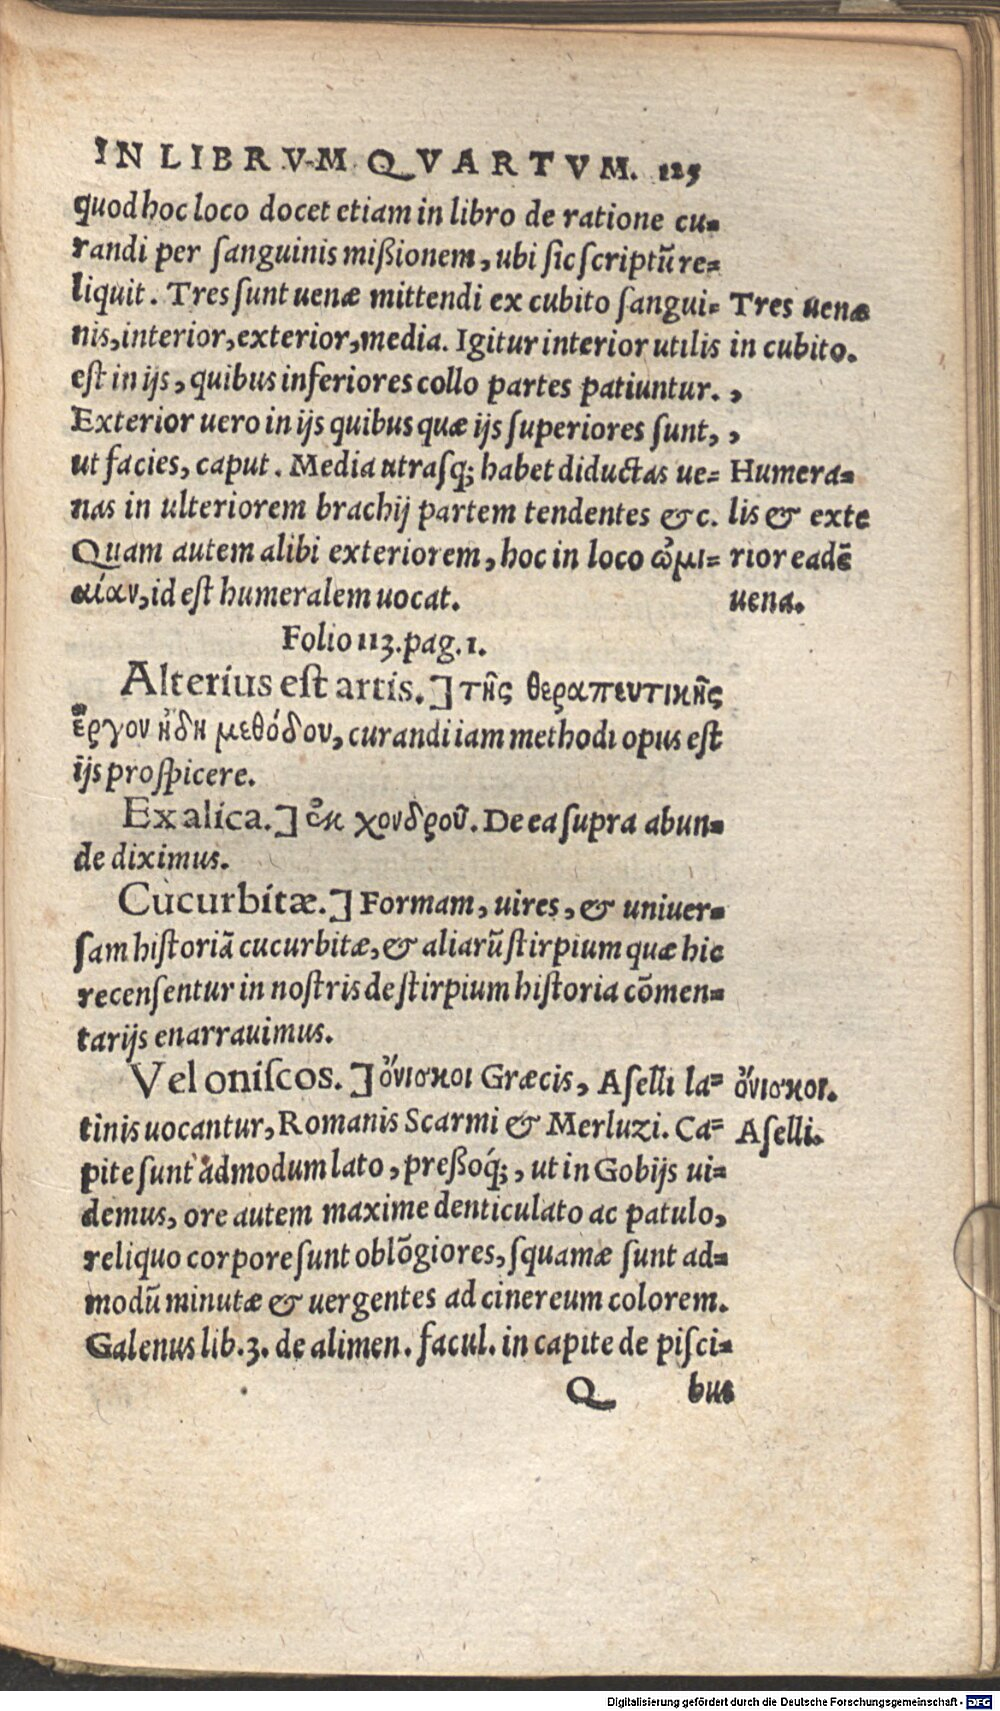 IN LIBRVM QVARTVM. 125
quod hoc loco docet etiam in libro de ratione cu-
randi per sanguinis mißionem, ubi sic scriptū re-
liquit. Tres sunt uenæ mittendi ex cubito sangui-
nis, interior, exterior, media. Igitur interior utilis
est in ijs, quibus inferiores collo partes patiuntur.
Exterior uero in ijs quibus quæ ijs superiores sunt,
ut facies, caput. Media utrasq; habet diductas ue-
nas in ulteriorem brachij partem tendentes &c.
Quam autem alibi exteriorem, hoc in loco ὠμι-
αίαν, id est humeralem uocat.
Tres uenæ
in cubito.
,
,
Humera-
lis & exte
rior eadē
uena.
Folio 113. pag. 1.
Alterius est artis.] τῆς θεραπευτικῆς
ἔργον ἤδη μεθόδου, curandi iam methodi opus est
ijs prospicere.
Ex alica.] ἐκ χονδροῦ. De ea supra abun-
de diximus.
Cucurbitæ.] Formam, uires, & uniuer-
sam historiā cucurbitæ, & aliarū stirpium quæ hic
recensentur in nostris de stirpium historia cōmen-
tarijs enarrauimus.
Vel oniscos.] ὄνισκοι Græcis, Aselli la-
tinis uocantur, Romanis Scarmi & Merluzi. Ca-
pite sunt admodum lato, preßoq́;, ut in Gobijs ui-
demus, ore autem maxime denticulato ac patulo,
reliquo corpore sunt oblōgiores, squamæ sunt ad-
modū minutæ & uergentes ad cinereum colorem.
Galenus lib. 3. de alimen. facul. in capite de pisci-
ὄνισκοι.
Aselli.
Q bus
Digitalisierung gefördert durch die Deutsche Forschungsgemeinschaft - DFG